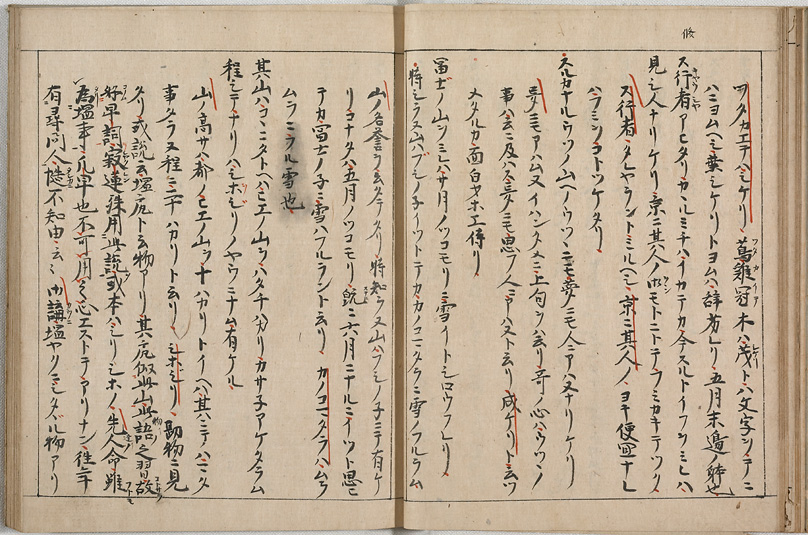 ヲクカエテハシケリ 蔦雞冠木ハ茂トハ文字ツテニ
ハニヨムヘシ葉シケリトヨムハ辞劣レリ 五月末邊ノ躰也
ス行者アヒタリカヽルミチハイカテカ今スルトイフヲミレハ
見シ人ナリケリ京ニ其人ノ御モトニトテフミカキテツク
ス行者 タレヤラントミルヘシ 京ニ其人ノ ヨキ便可ナレ
ハフミヲコトツケタリ
スルカナルウツノ山ヘノウツヽニモ夢ニモ人ニアハヌナリケリ
夢ニモアハヌ又イハンタメニ上句ヲハ云リ哥ノ心ハウツヽノ
事ハ云ニ及ハス夢ニモ思フ人ニアハヌト云リ 成ケリト云ツ
メタルカ面白キコエ侍リ
冨士ノ山ヲミレハ五月ノツコモリニ雪イトシロウフレリ
時シラヌ山ハフシノネイツトテカカノコマタラニ雪ノフルラム
山ノ名誉ヲ云タテタリ 時知ラヌ山ハフシノネニテ有ケ
リコナタハ五月ノツコモリ 既ニ六月ニナルニイツト思
テカ冨士ノネニ雪ハフルラント云リ カノコマタラハムラ
ムラニフル雪也
其山ハコヽニタトヘハヒエノ山ヲハタチハカリカサネアケタラム
程シテナリハシホシリノヤウニナム有ケル
山ノ高サハ都ノヒエノ山ヲ十ハカリトイヘハ其ニテハニタ
事タラヌ程ニ二十ハカリト云リ シホシリ 勘物ニ見
タリ 或説云壇尻ト云物アリ 其尻似此山此物語之習故
好卑詞 寂蓮殊用此説 或本ハシリシホノ 先人命雖
為塩事凡卑也不可用 只心エストテアリナン 往年
有尋問人 慥不知由云々 講塩ヤノミタル物アリ